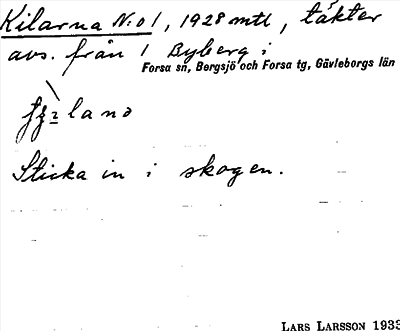 Kilarna N:o 1, 1928 mtl, täkter
avs. från 1 Byberg i
Forsa sn, Bergsjö och Forsa tg, Gävleborgs län
Sticka in i skogen.
LARS LARSSON 1933